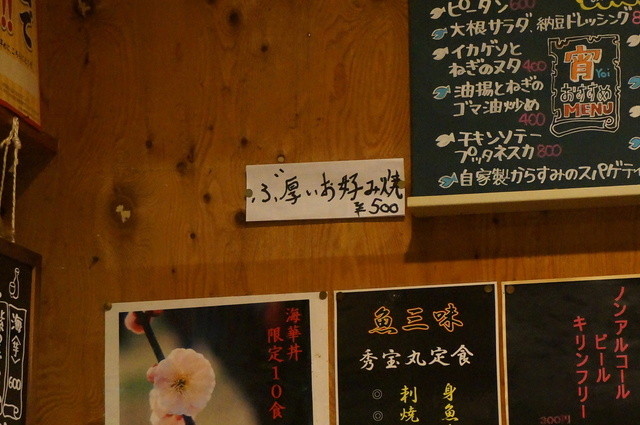 ピータン 600
大根サラダ 納豆ドレッシング
イカゲソと
ねぎのヌタ 400
油揚とねぎの
ゴマ油炒め
400
チキンソテー
プッタネスカ 800
自家製からすみのスパゲティ
宵
Yoi
おすすめ
MENU
ぶ厚いお好み焼
¥500
海華丼
限定10食
魚三味
秀宝丸定食
◎刺身
◎焼魚
ノンアルコール
ビール
キリンフリー
300円
600